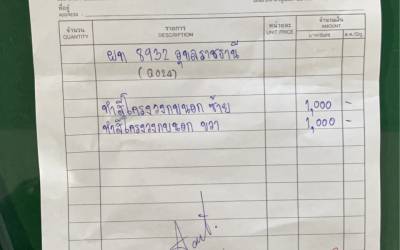 ที่อยู่
จำนวน รายการ หน่วยละ จำนวนเงิน
QUANTITY DESCRIPTION UNIT PRICE AMOUNT
ผท 8932 อุบลราชธานี
ทำสีโครงวงกบนอก ซ้าย 1,000 -
ทำสีโครงวงกบนอก ขวา 1,000 -